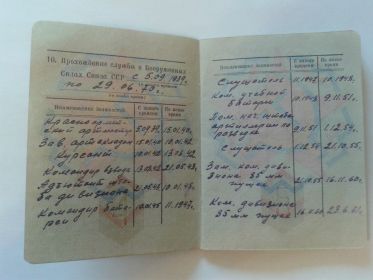 10. Прохождение службы в Вооруженных
Силах Союза ССР с 5.09.1939г.
по 29.06.73г.
Наименование должностей
С какого времени
По какое время
Красноарме-
ский артполк 5.09.39 15.01.40г.
Зав. артскладом 15.01.40 10.01.42
Курсант 10.01.42 13.05.42
Командир взвода
Адъютант
дивизиона 21.05.43 10.01.45
Командир бата-
реи 10.01.45 11.1947г.
Наименование должностей
С какого времени
По какое время
Слушатель 11.1947 10.1948г.
Ком. учебной
батареи 10.1948 9.11.51г.
Пом. нач. штаба
артиллерии по
разведке 9.11.51 1.12.54г.
Слушатель 1.12.54 21.10.55г.
Зам. ком. диви-
зиона 85 мм
пушек 21.10.55 16.11.60г.
Ком. дивизиона
85 мм пушек 16.11.60 23.6.61г.